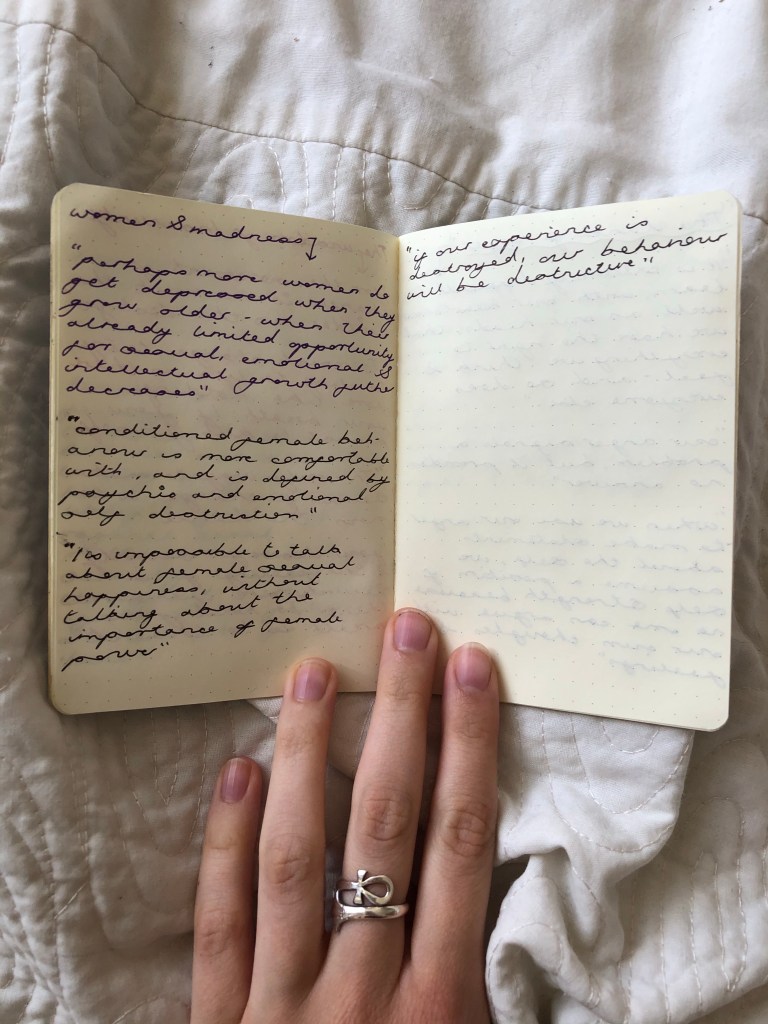 women & madness
"perhaps more women do
get depressed when they
grow older - when their
already limited opportunity
for sexual, emotional &
intellectual growth futher
decreases"
"conditioned female beh-
aviour is more comfortable
with, and is defined by
psychic and emotional
self destruction"
"Its impossible to talk
about female sexual
happiness, without
talking about the
importance of female
power"
"if our experience is
destroyed, our behaviour
will be destructive"